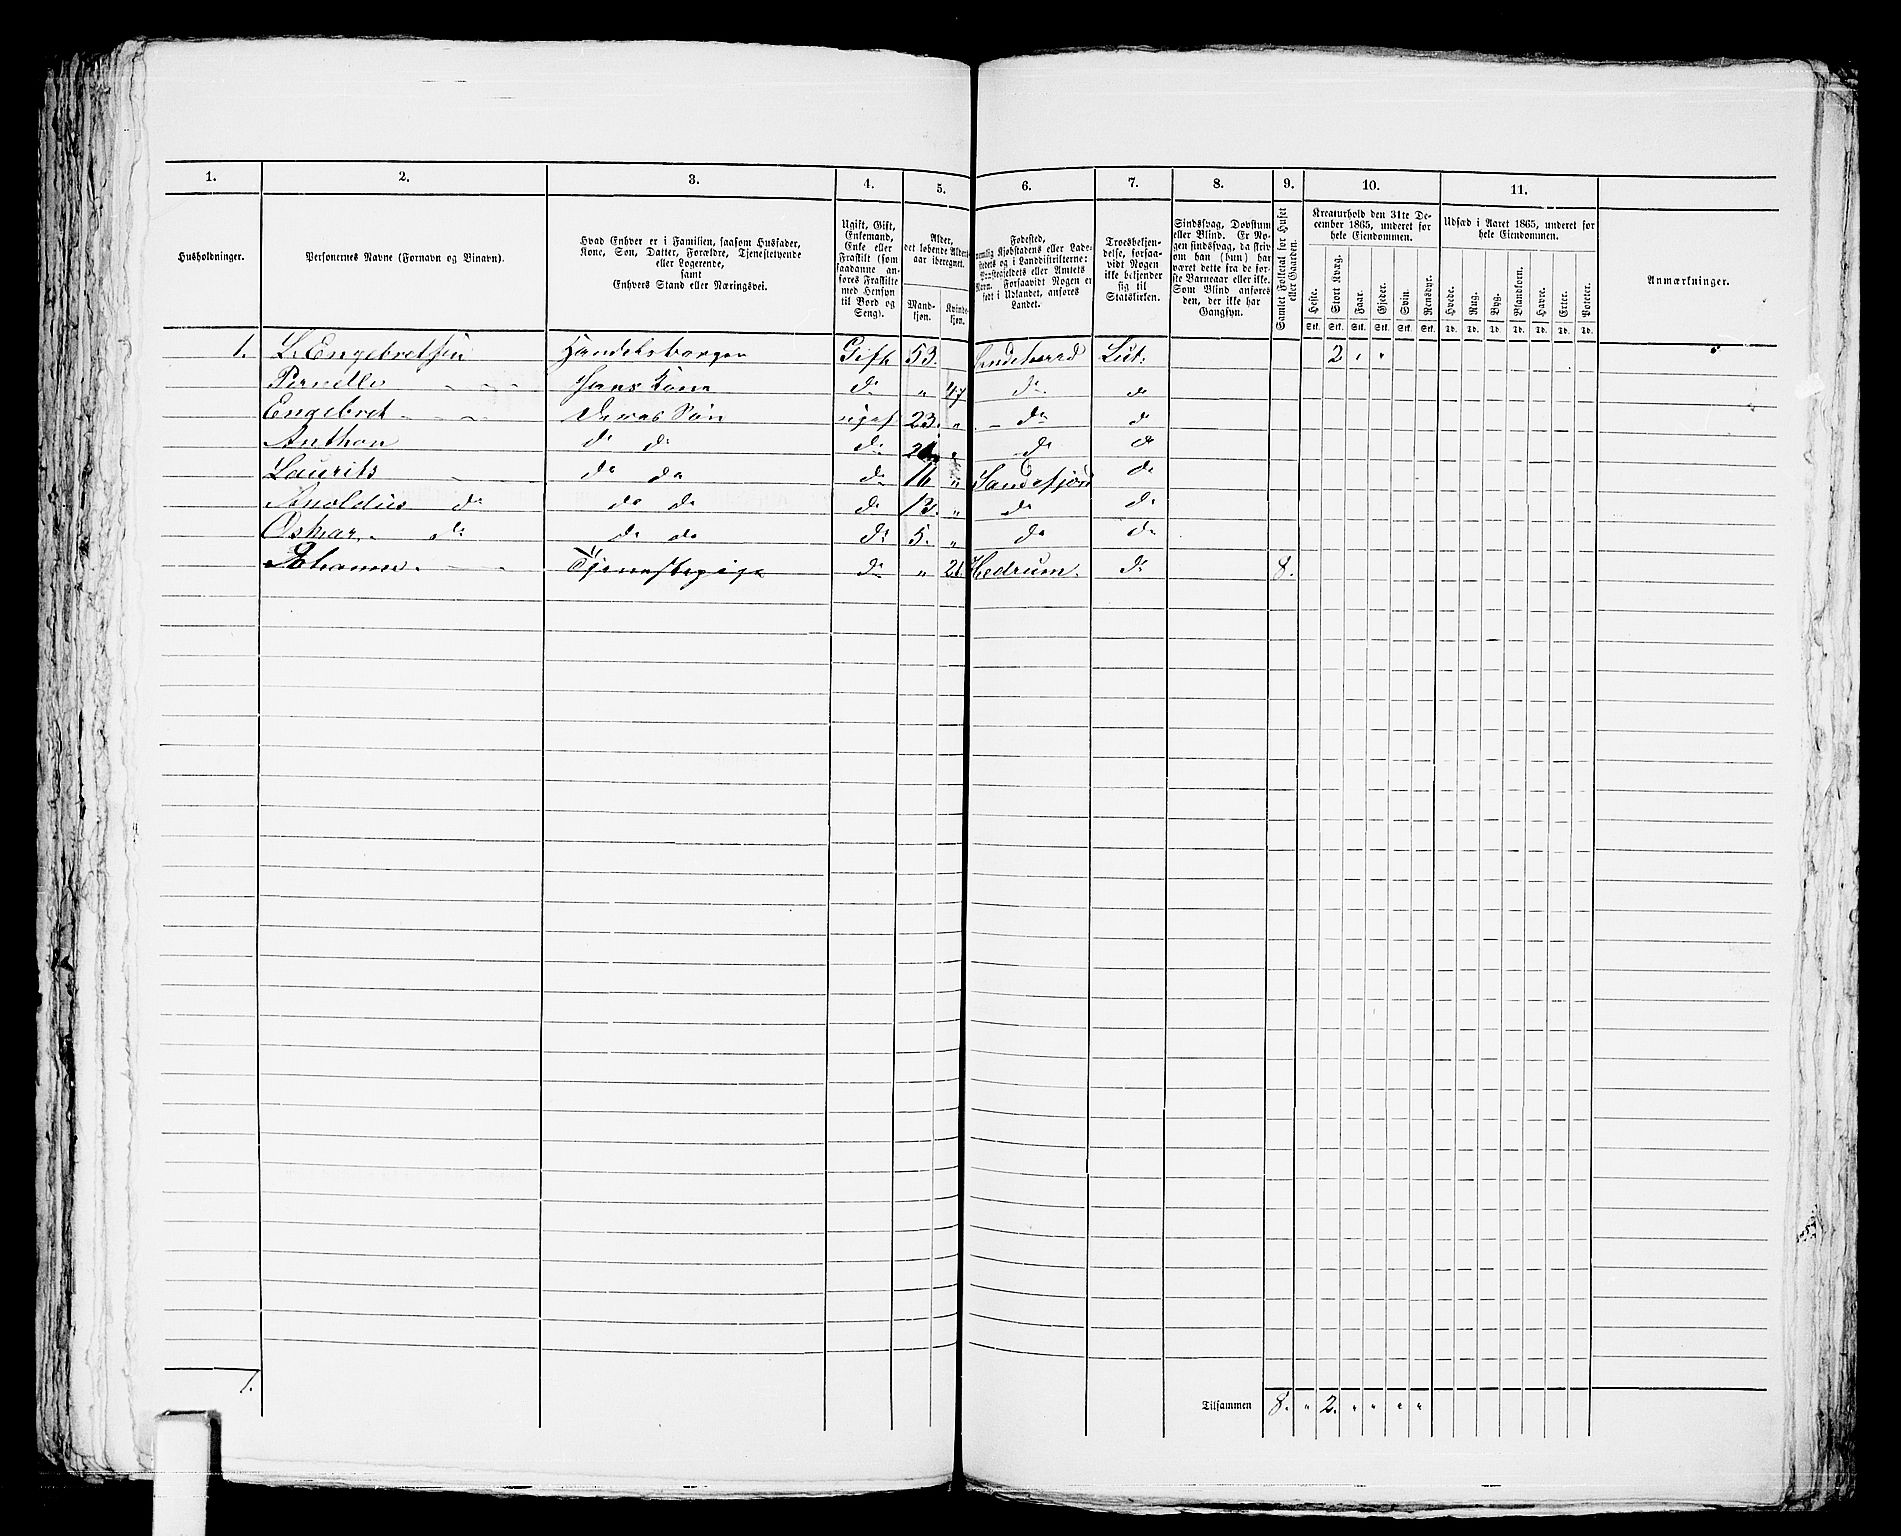 1. 2. 3. 4. 5. 6. 7. 8. 9. 10. 11.
Husholdninger.
Personernes Navne (Fornavn og Binavn).
Hvad Enhver er i Familien, saasom Husfader,
Kone, Søn, Datter, Forældre, Tjenestetyende
eller Logerende,
samt
Enhvers Stand eller Næringsvei.
Ugift, Gift,
Enkemand,
Enke eller
Fraskilt (som
saadanne an-
føres Fraskilte
med Hensyn
til Bord og
Seng).
Alder,
det løbende Alders-
aar iberegnet.
Mand-
kjøn.
Kvinde-
kjøn.
Fødested,
nemlig Kjøbstadens eller Lade-
stedets og i Landdistrikterne:
Præstegjeldets eller Amtets
Navn. Forsaavidt Nogen er
født i Udlandet, anføres
Landet.
Troesbekjen-
delse, forsaa-
vidt Nogen
ikke bekjender
sig til
Statskirken.
Sindssvag, Døvstum
eller Blind. Er No-
gen sindssvag, da skriv
om han (hun) har
været dette fra de før-
ste Barneaar eller ikke.
Som Blind anføres
den, der ikke har
Gangsyn.
Samlet Folketal for Huset
eller Gaarden.
Kreaturhold den 31te De-
cember 1865, underet for
hele Eiendommen.
Heste. Stort Kvæg. Faar. Gjeder. Svin. Rensdyr.
Stk. Stk. Stk. Stk. Stk. Stk.
Udsæd i Aaret 1865, underet for
hele Eiendommen.
Hvede. Rug. Byg. Blandkorn. Havre. Erter. Poteter.
Td. Td. Td. Td. Td. Td. Td.
Anmærkninger.
1. L. Engebretsen Handelsborger Gift 53. Sandeherred Lut. 2 " "
Pernille — — Hans Kone do " 47 do do
Engebret — — Deres Søn ugift 23. " do do
Anthon do do do " do do
Laurits do do do 16 " Sandefjord do
Anoldus do do do do 13. " do do
Oskar. do do do do 5. " do do
Johanne. — Tjenestepige do " 21. Hedrum. do 8.
1. Tilsammen 8. " 2. " " " "